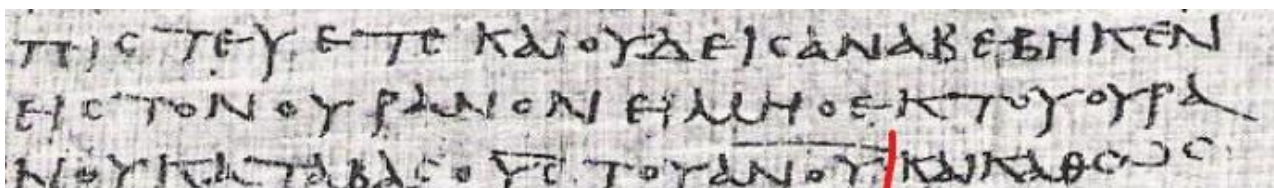 ΠΙСΤΕΥΕΤΕ ΚΑΙΟΥΔΕΙСΑΝΑΒΕΒΗΚΕΝ
ΕΙСΤΟΝΟΥΡΑΝΟΝ ΕΙΜΗΟΕΚΤΟΥΟΥΡΑ
ΝΟΥΚΑΤΑΒΑСΟΥ̅С̅ΤΟΥΑ̅Ν̅Ο̅Υ̅ ΚΑΙΚΑΘΩС